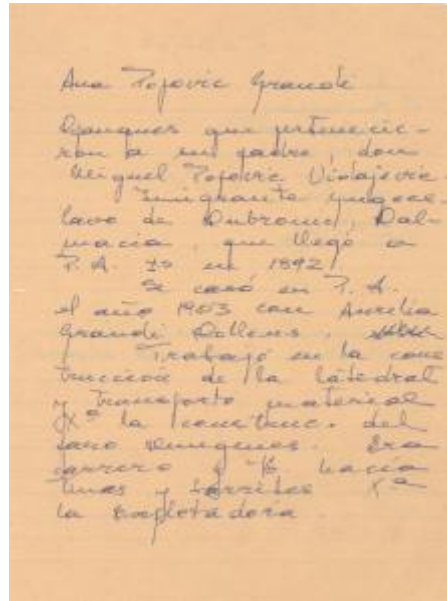 Ana Popovic Grandi
que pertenecie-
ron a mi padre, don
Miguel Popovic
Inmigrante yugoes-
lavo de Dubrovnic, Dal-
macia, que llegó a
P. A. en 1892
Se casó en P. A.
el año 1903 con Aurelia
Grandi
Trabajó en la cons
trucción de la catedral
y transportó material
Xª la construc. del
faro Evangelistas. Era
carrero y hacía
tinas y barriles Xª
la